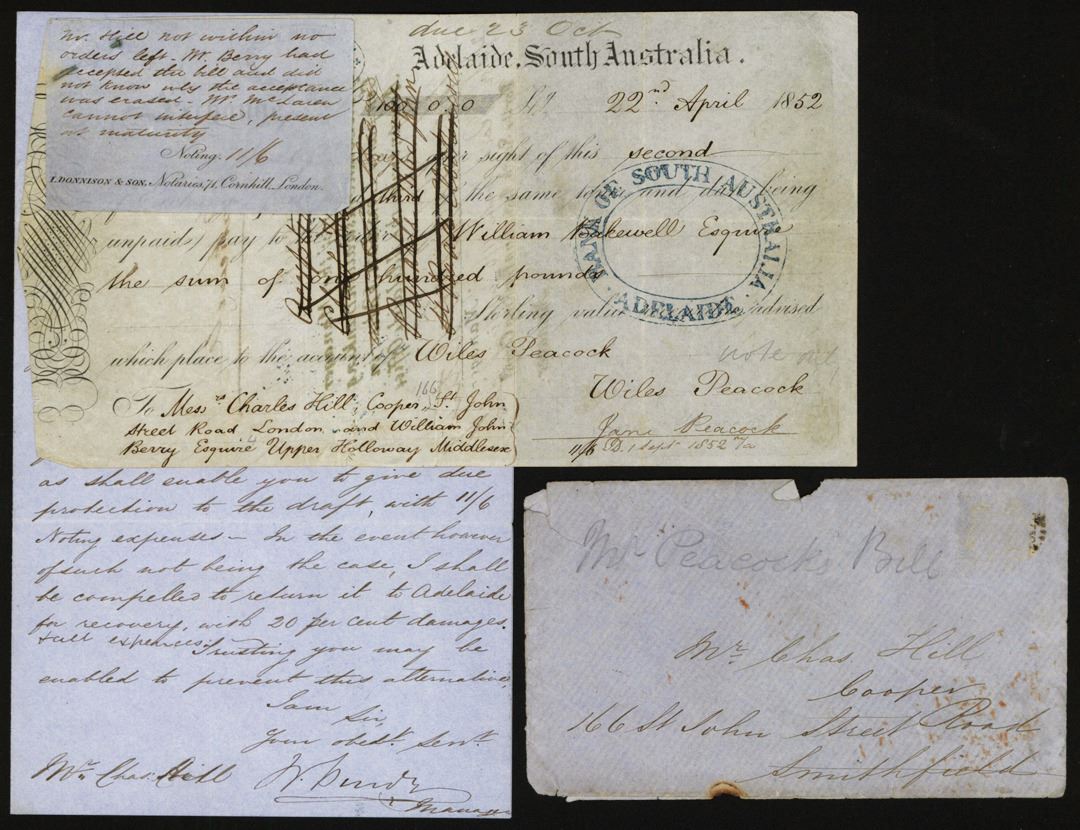 Mr. Hill not within no
orders left. Mr. Berry had
accepted the bill and did
not know why the acceptance
was erased - Mr. McLaren
cannot interfere, present
at maturity
Noting. 11/6
DONNISON & SON, Notaries, 71, Cornhill, London.
due 23 Oct
Adelaide, South Australia.
100 0 0
22nd April 1852
sight of this second
third of the same tenor and date being
unpaid) pay to William Bakewell Esquire
the sum of one hundred pounds
Sterling value advised
which place to the account of Wiles Peacock
note out
Wiles Peacock
Jane Peacock
11/6 1 Sept 1852
BANK OF SOUTH AUSTRALIA
ADELAIDE
166
To Messrs Charles Hill, Cooper, St. John
Street Road London and William John
Berry Esquire Upper Holloway Middlesex
as shall enable you to give due
protection to the draft, with 11/6
Noting expenses - In the event however
of such not being the case, I shall
be compelled to return it to Adelaide
for recovery, with 20 per cent damages.
& all expences. Trusting you may be
enabled to prevent this alternative,
I am
Sir,
Your obedt. servt.
Mr. Chas. Hill
Manager
Mr Peacock's Bill
Mr. Chas. Hill
Cooper
166 St John Street Road
Smithfield